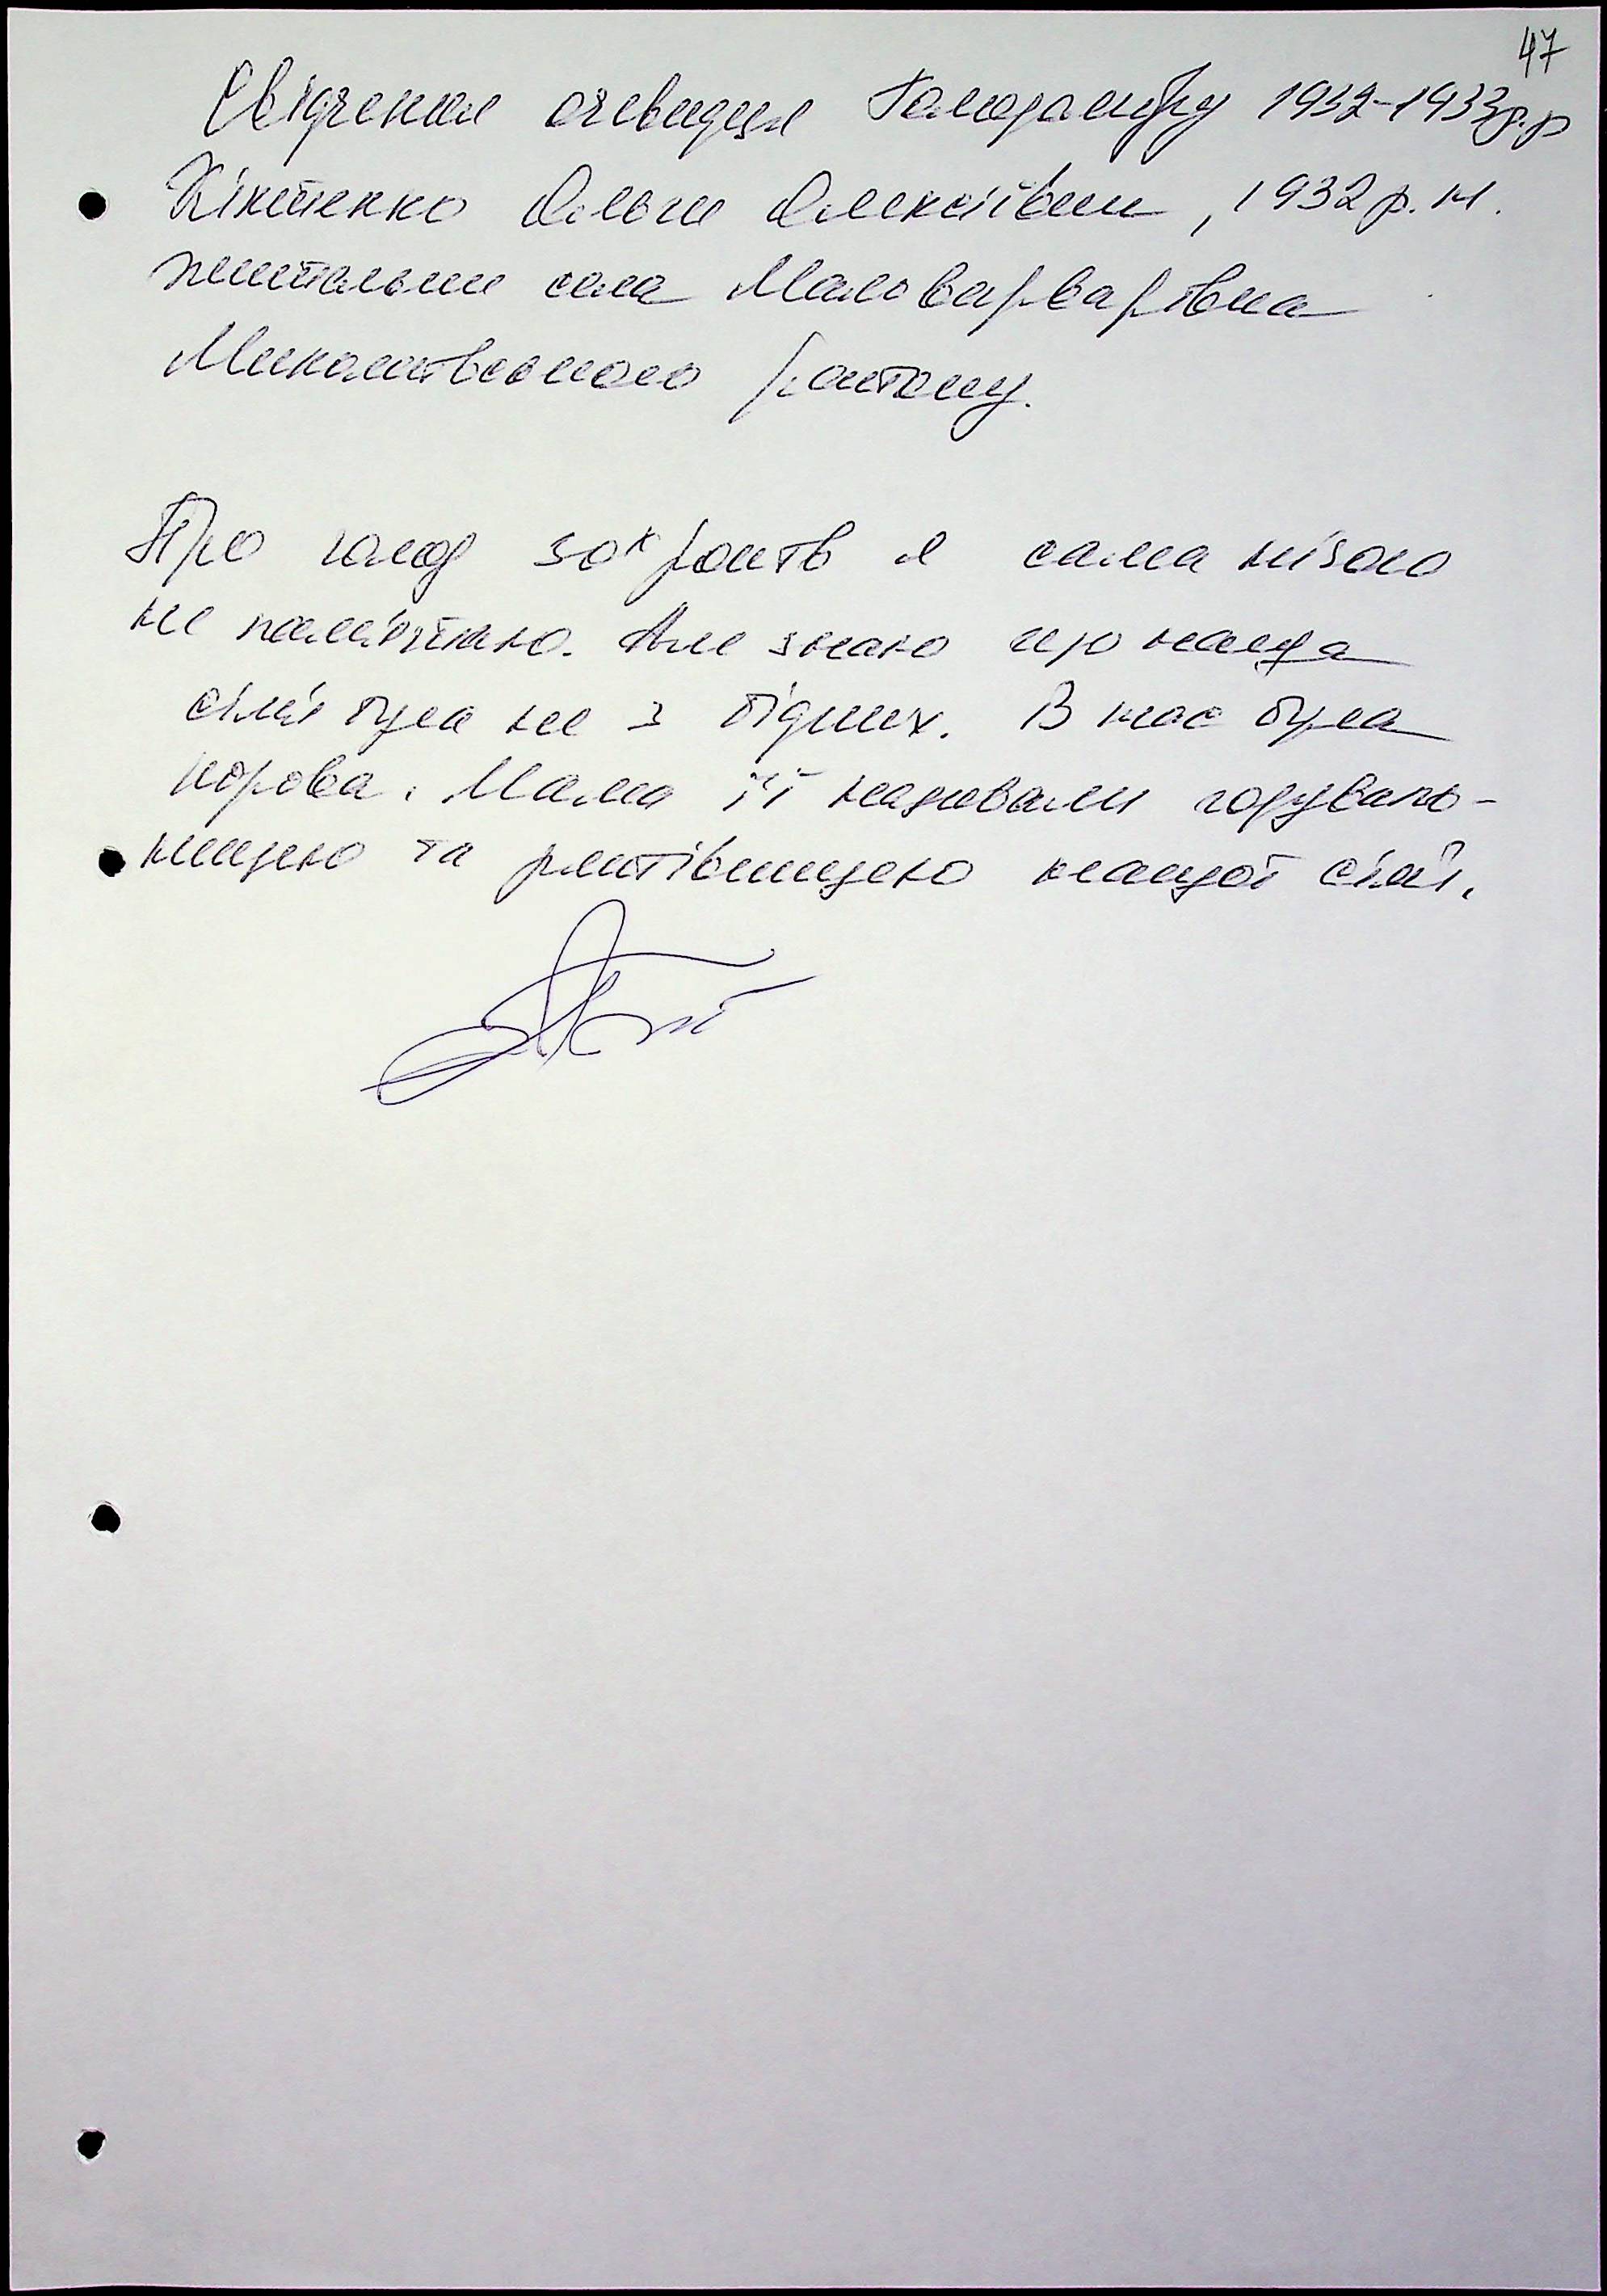 47
Свідчення очевидця Голодомору 1932-1933 р.р
Ольги Олексіївни, 1932 р. н.
жительки села Маловарварівка
Миколаївського району.
Про голод 30х років я сама нічого
не пам'ятаю. Але знаю що наша
сім'я була не з бідних. В нас була
корова. Мама її називали годуваль-
ницею та рятівницею нашої сім'ї.